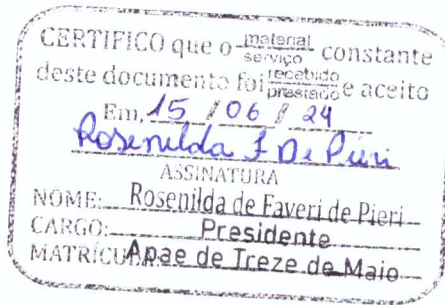 CERTIFICO que o material serviço constante
deste documento foi recebido prestado e aceito
Em, 15 / 06 / 24
Rosenilda F De Pieri
ASSINATURA
NOME: Rosenilda de Faveri de Pieri
CARGO: Presidente
MATRÍCULA Apae de Treze de Maio